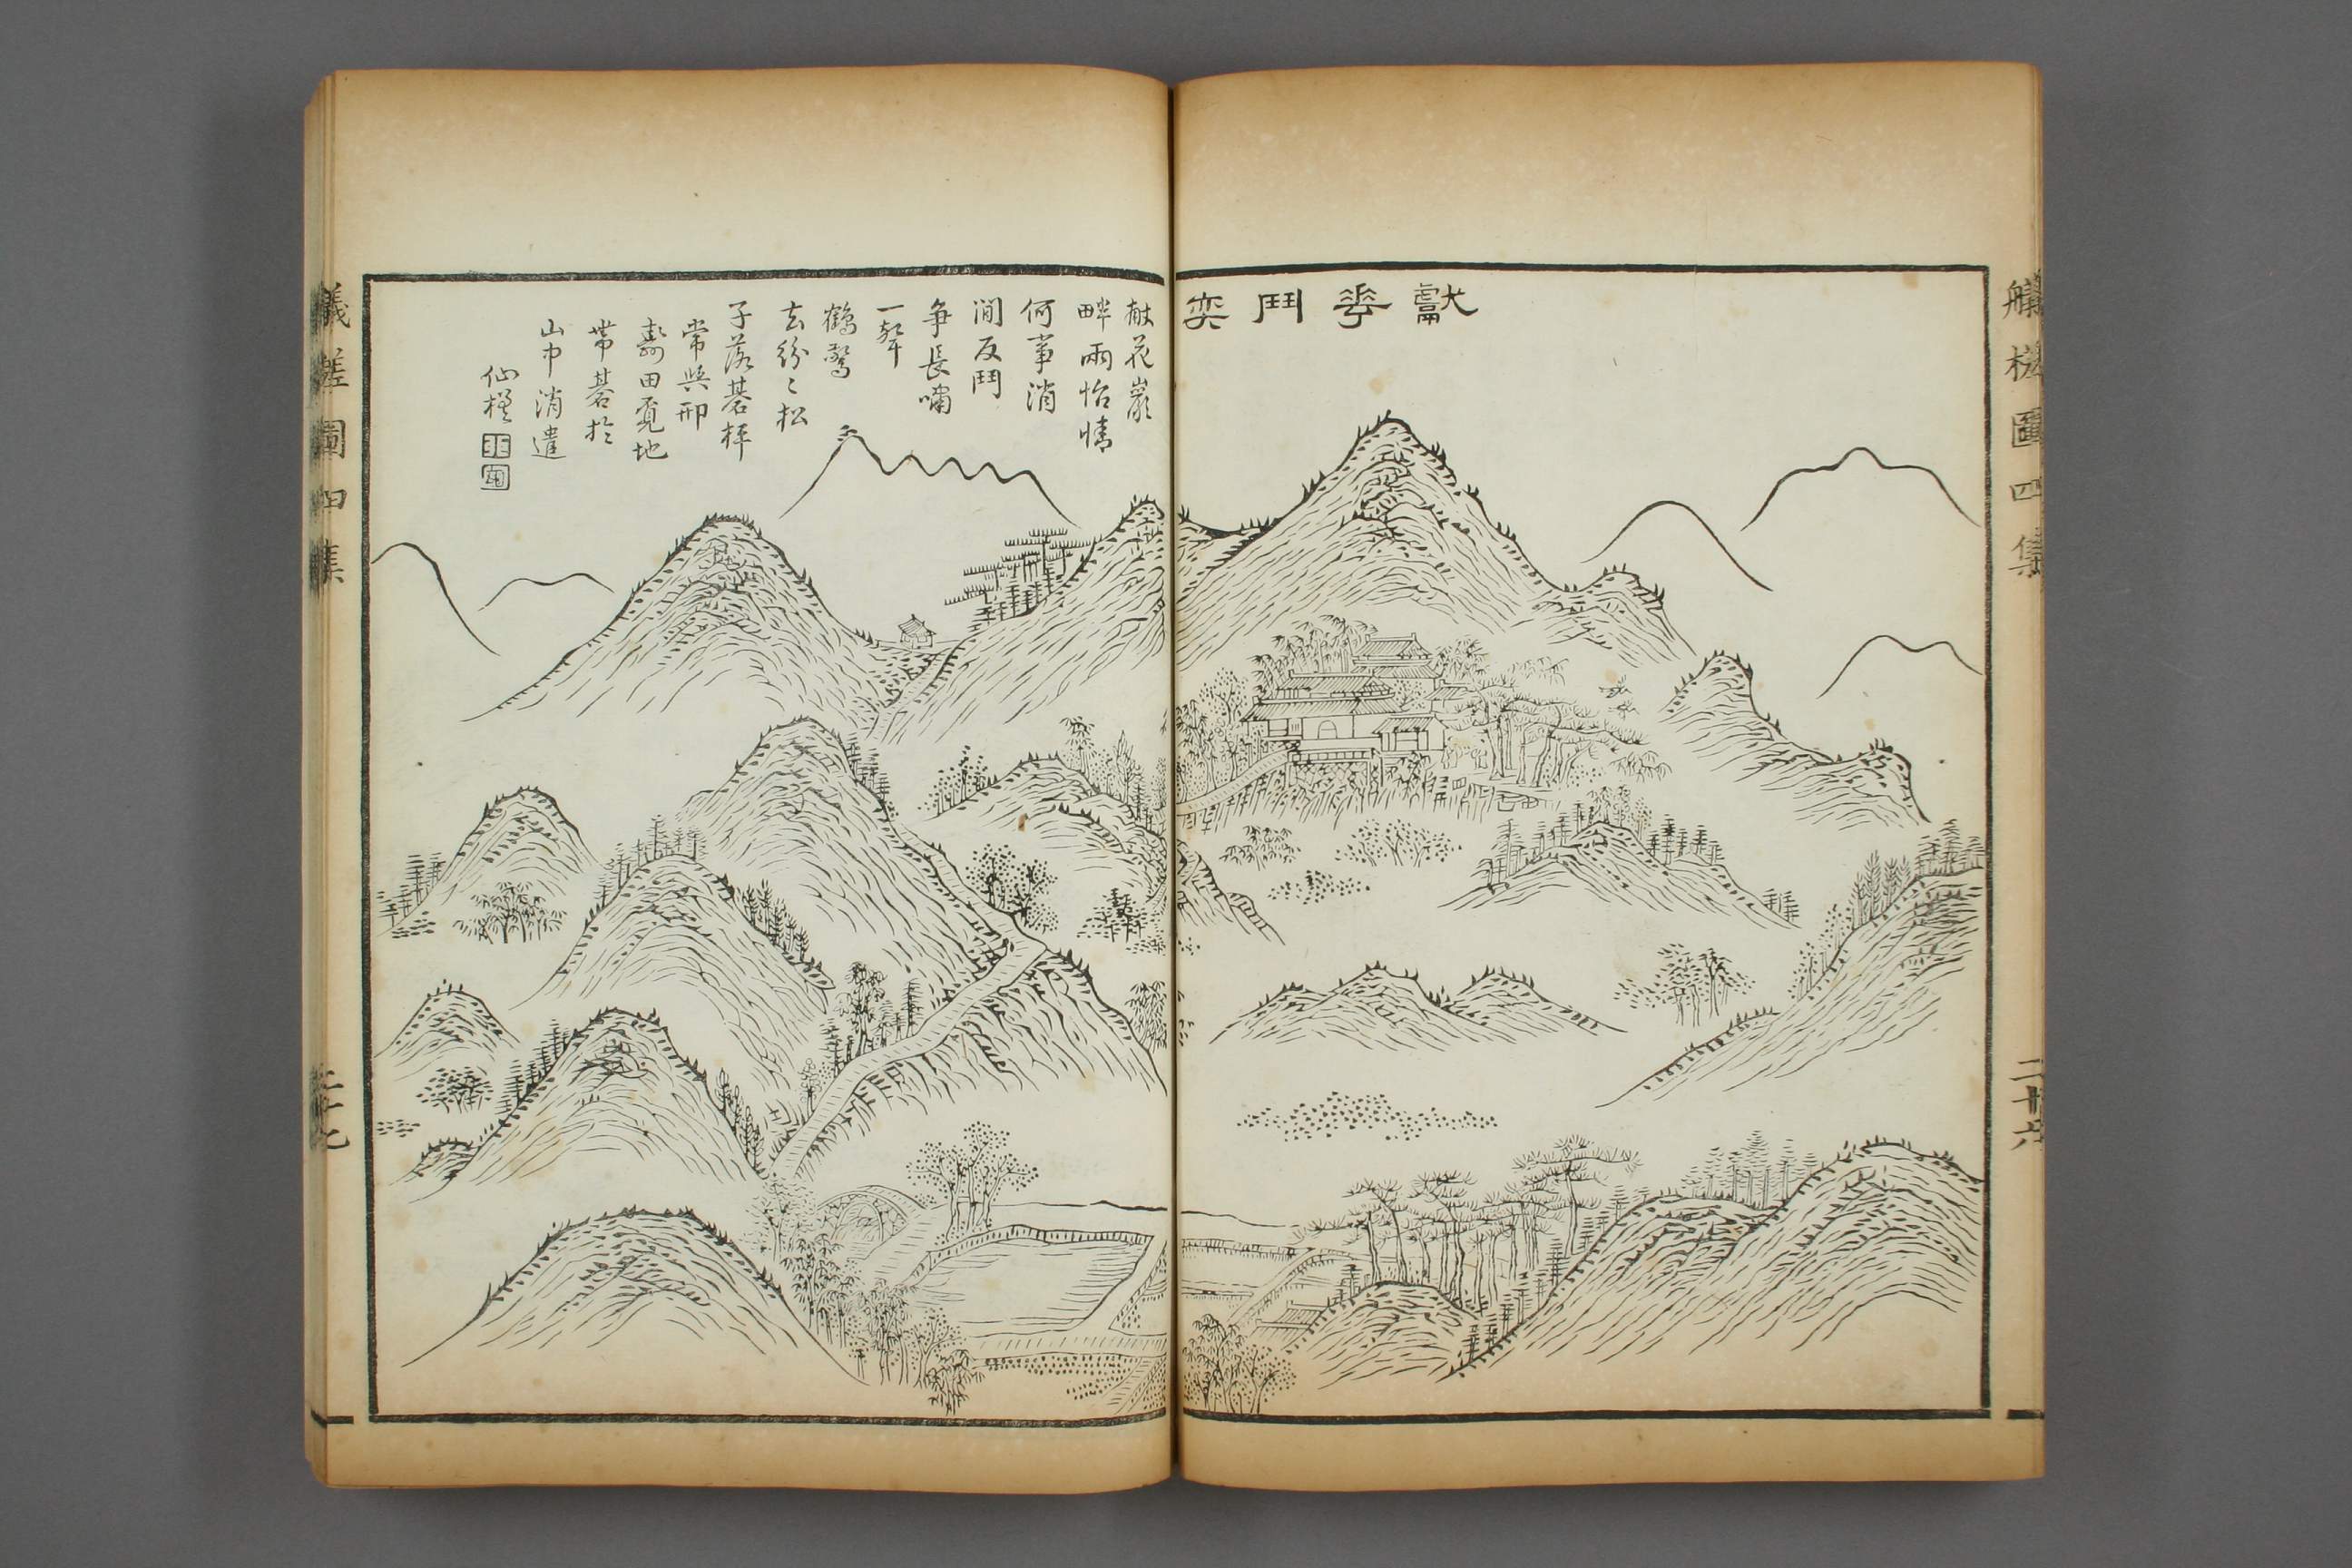 獻花鬥奕
献花巖
畔兩怡情
何事消
閒反鬥
爭長嘯
一聲
鶴驚
去紛〻松
子落碁枰
常與邢
壽田覔地
帶碁於
山中消遣
仙槎
艤槎圖四集
二十六
艤槎圖四集
二十七